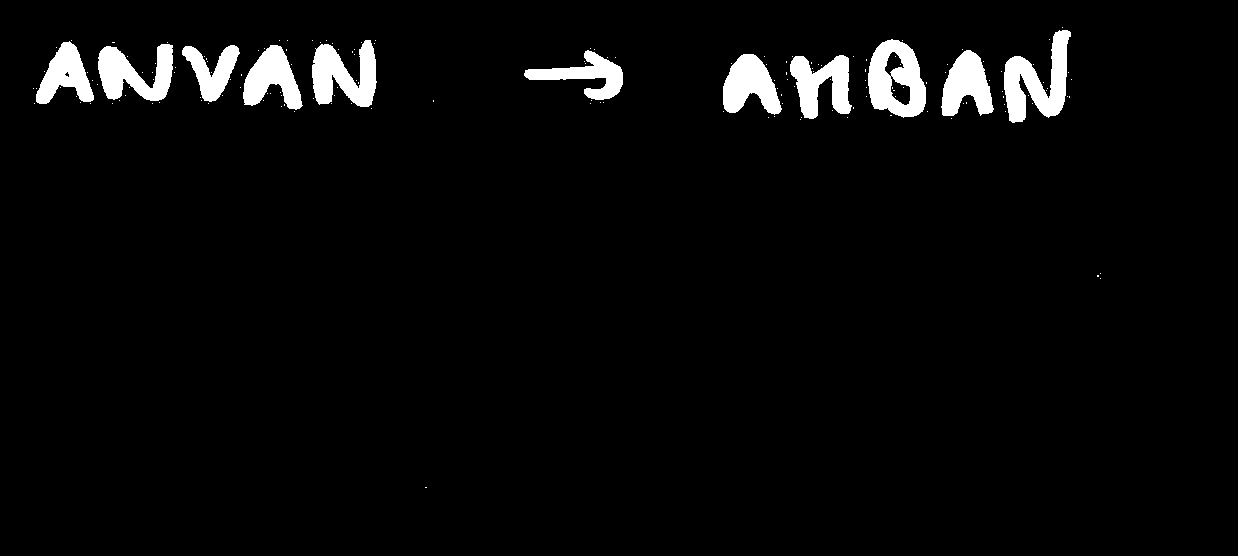 ANVAN → ANBAN